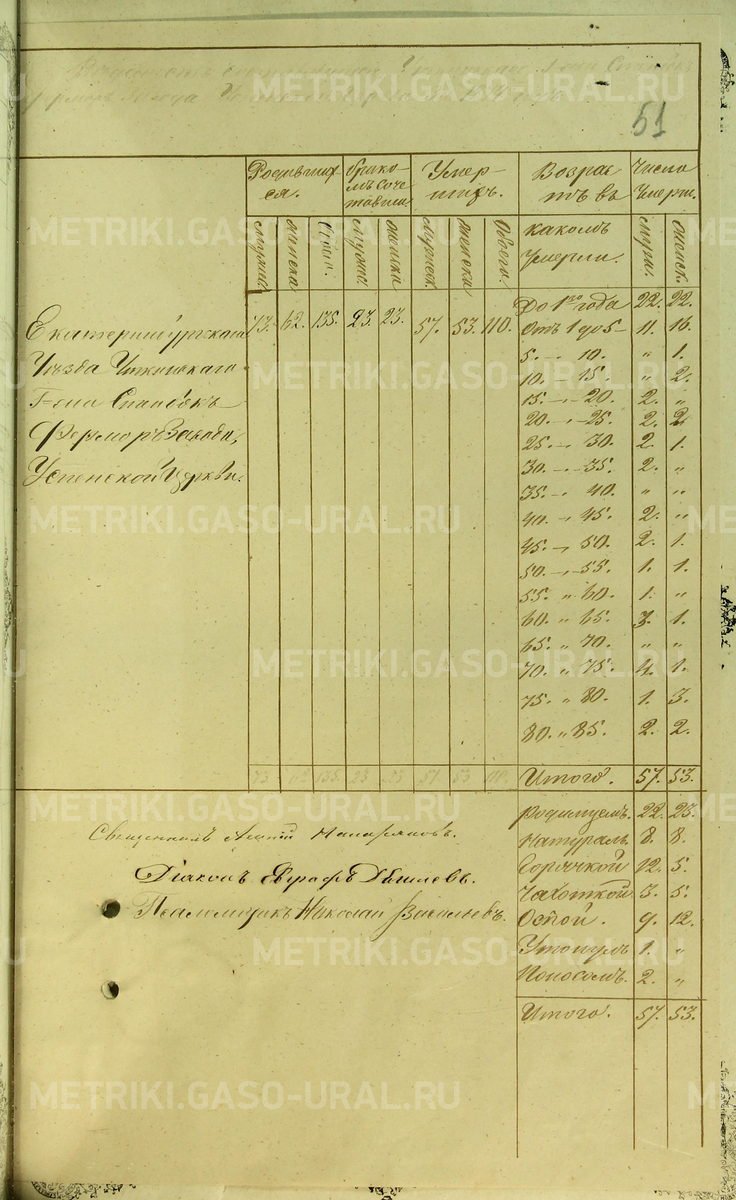 51
Родившихся. | бракомъ сочетавши | Умершихъ. | Возрастъ въ какомъ умерли. | Число Умерш.
Мужска | женска | Обоего | Мужска | женска | Мужеск | женски | Обоего | Муж. | Женск.
До 1го года 22. 22.
Екатеринбургскаго 73. 62. 135. 23. 23. 57. 53. 110. Отъ 1 до 5 11. 16.
Уѣзда Уткинскаго 5. — 10. „ 1.
10. — 15. „ 2.
Г-на 15. — 20. 2. „
20. — 25. 2. 2.
Завода, 25. — 30. 2. 1.
30. — 35. 2. „
Успенской Церкви. 35. — 40. „ „
40. — 45. 2. „
45. — 50. 2. 1.
50. — 55. 1. 1.
55. „ 60. 1. „
60. „ 65. 3. 1.
65. „ 70. „ „
70. „ 75. 4. 1.
75. „ 80. 1. 3.
80. „ 85. 2. 2.
73 62 135 23 23 57 53 110 Итого. 57. 53.
Родимцемъ. 22. 23.
Священникъ Натураль. 8. 8.
Горячкой 12. 5.
Діаконъ Чахоткой 3. 5.
Псаломщикъ Николай Васильевъ. Оспой. 9. 12.
Утонулъ 1. „
Поносомъ. 2. „
Итого. 57. 53.
METRIKI.GASO-URAL.RU